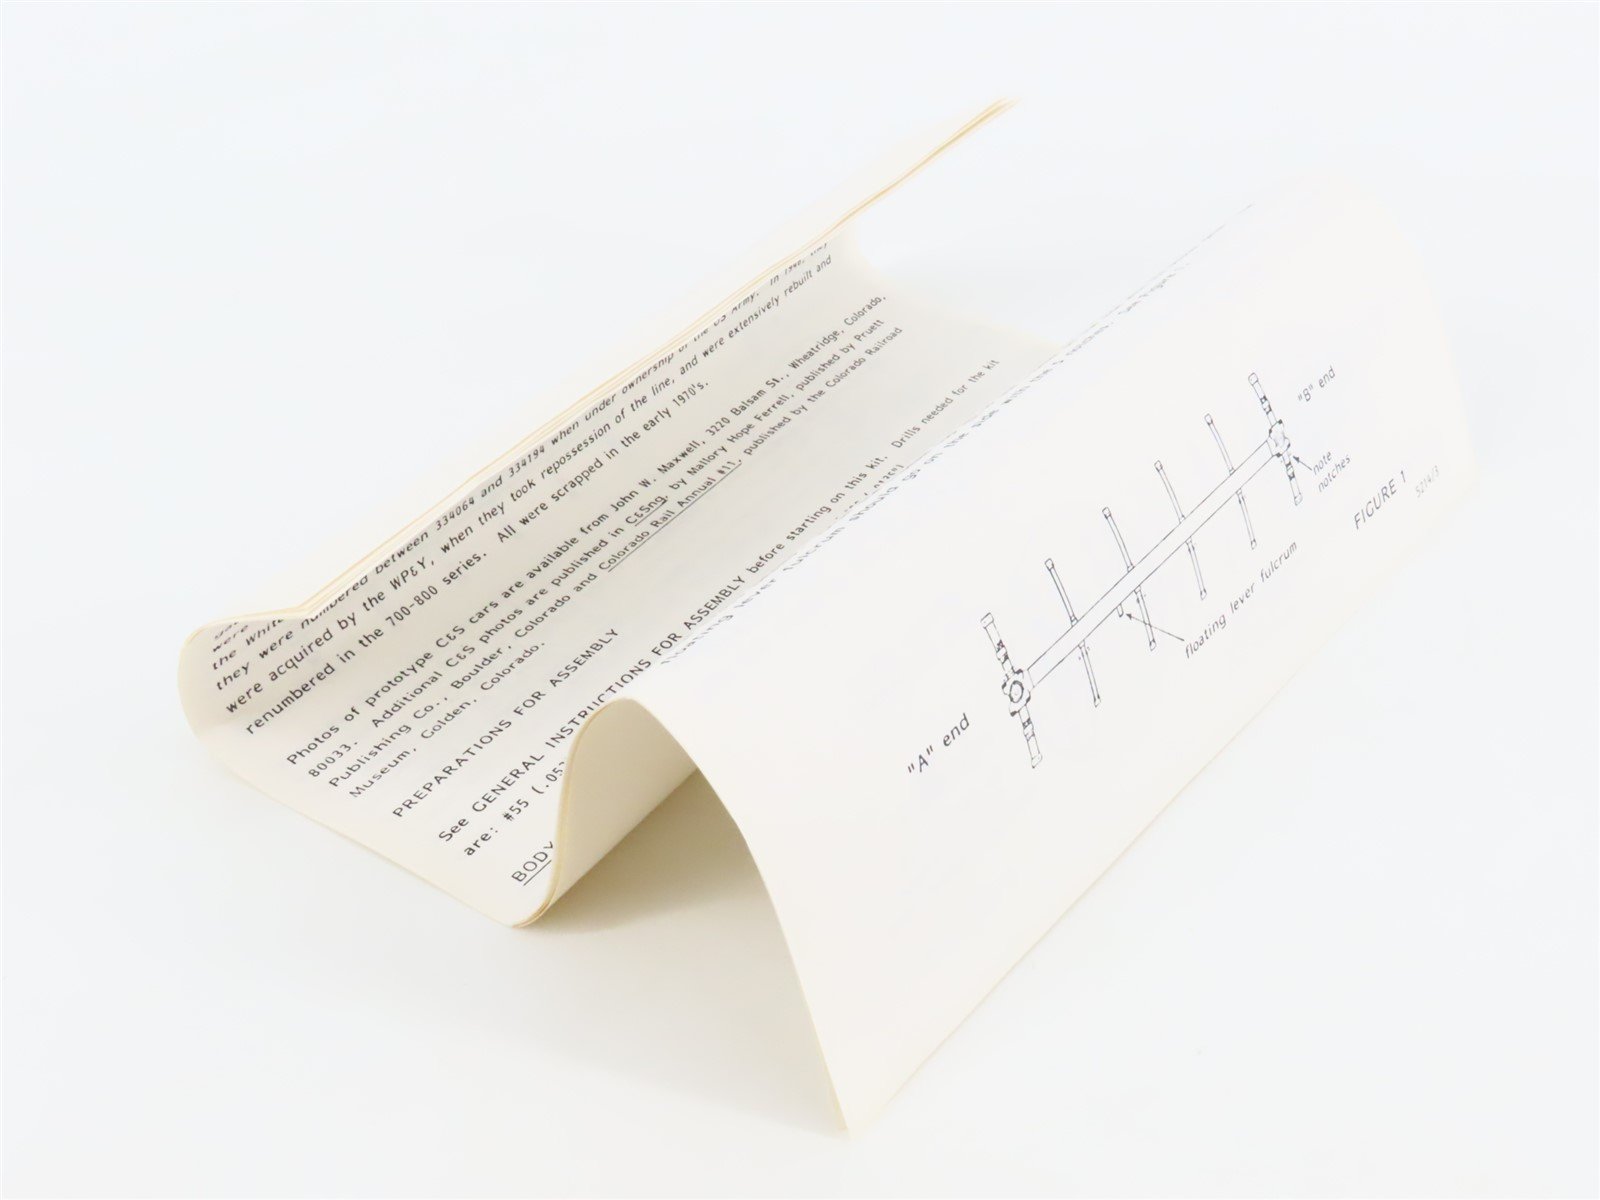 were
the White
they were numbered between 334064 and 334194 when under ownership of the US Army. In 1946, they
were acquired by the WP&Y, when they took repossession of the line, and were extensively rebuilt and
renumbered in the 700-800 series. All were scrapped in the early 1970's.
Photos of prototype C&S cars are available from John W. Maxwell, 3220 Balsam St., Wheatridge, Colorado,
80033. Additional C&S photos are published in C&Sng, by Mallory Hope Ferrell, published by Pruett
Publishing Co., Boulder, Colorado and Colorado Rail Annual #11, published by the Colorado Railroad
Museum, Golden, Colorado.
PREPARATIONS FOR ASSEMBLY
See GENERAL INSTRUCTIONS FOR ASSEMBLY before starting on this kit. Drills needed for the kit
are: #55 (.052
BODY
floating lever fulcrum should go on the side with the
"A" end
"B" end
note
notches
floating lever fulcrum
FIGURE 1
5214/3